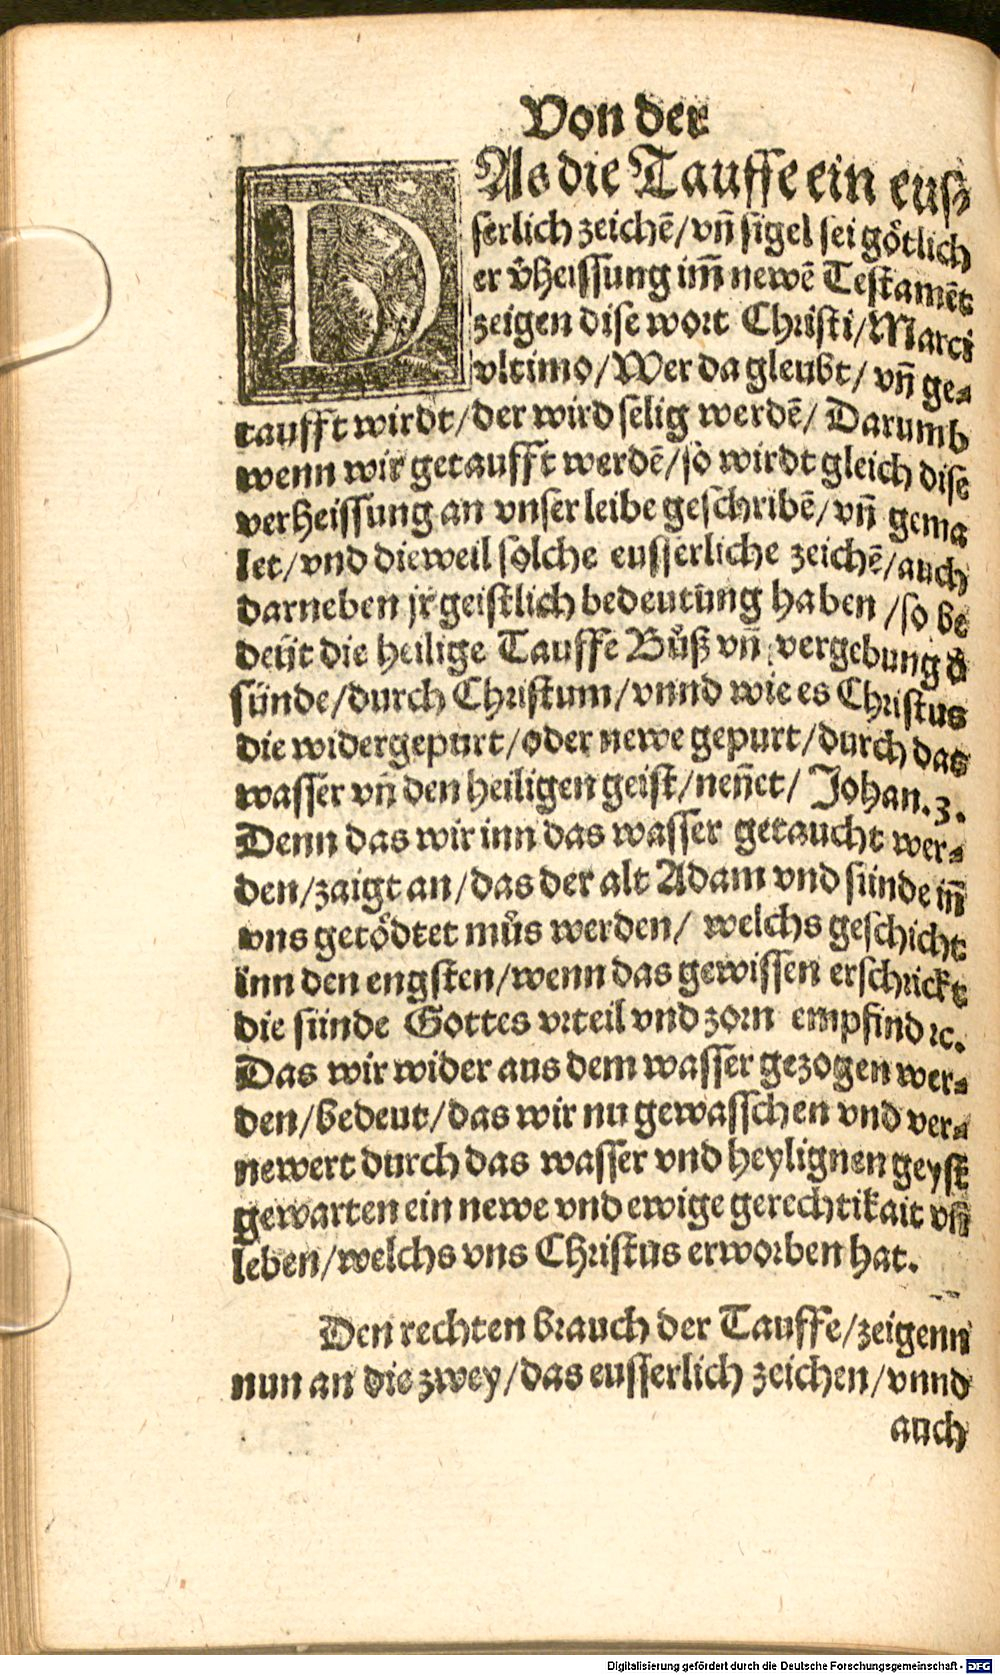 Von der
DAs die Tauffe ein eus⸗
serlich zeichē/vñ sigel sei götlich
er v̄heissung im̄ newē Testamēt
zeigen dise wort Christi/Marci
vltimo/Wer da gleubt/vñ ge⸗
taufft wirdt/der wird selig werdē/Darumb
wenn wir getaufft werdē/so wirdt gleich dise
verheissung an vnser leibe geschribē/vñ gema
let/vnd dieweil solche eusserliche zeichē/auch
darneben jr geistlich bedeutūng haben/so be
deüt die heilige Tauffe Bůß vñ vergebung d̄
sünde/durch Christum/vnnd wie es Christus
die widergepurt/oder newe gepurt/durch das
wasser vñ den heiligen geist/neñet/Johan.3.
Denn das wir inn das wasser getaucht wer⸗
den/zaigt an/das der alt Adam vnd sünde iñ
vns getödtet můs werden/welchs geschicht
inn den engsten/wenn das gewissen erschrickt
die sünde Gottes vrteil vnd zorn empfind ꝛc.
Das wir wider aus dem wasser gezogen wer⸗
den/bedeut/das wir nu gewasschen vnd ver⸗
newert durch das wasser vnd heylignen geyst
gewarten ein newe vnd ewige gerechtikait vñ
leben/welchs vns Christus erworben hat.
Den rechten brauch der Tauffe/zeigenn
nun an die zwey/das eusserlich zeichen/vnnd
auch
Digitalisierung gefördert durch die Deutsche Forschungsgemeinschaft - DFG